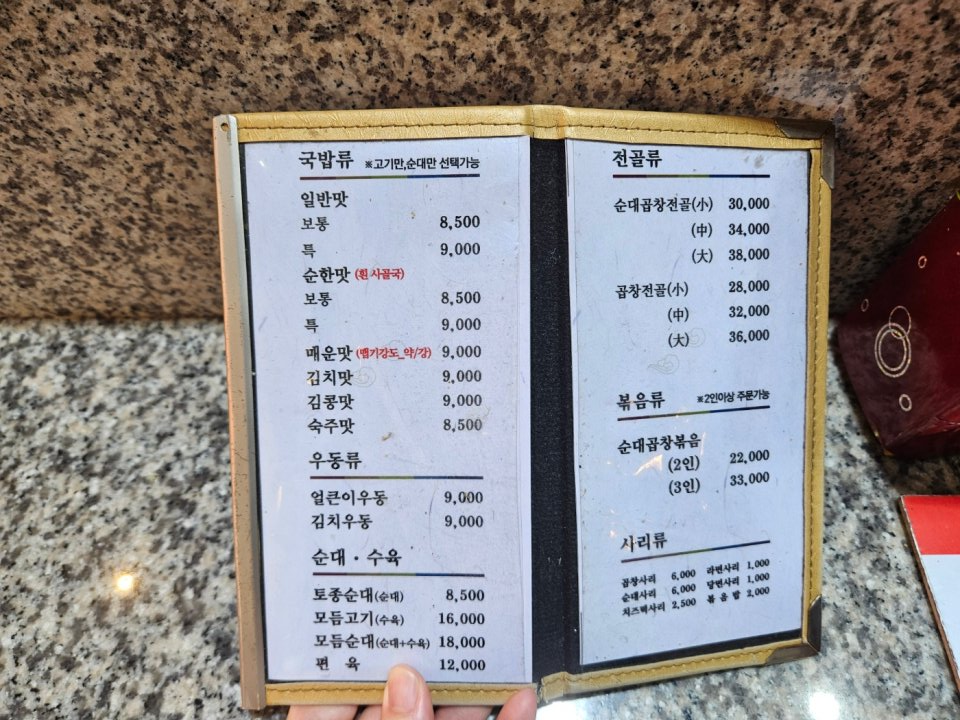 국밥류 ※고기만,순대만 선택가능
일반맛
보통 8,500
특 9,000
순한맛 (흰 사골국)
보통 8,500
특 9,000
매운맛 (맵기강도_약/강) 9,000
김치맛 9,000
김콩맛 9,000
숙주맛 8,500
우동류
얼큰이우동 9,000
김치우동 9,000
순대 · 수육
토종순대(순대) 8,500
모듬고기(수육) 16,000
모듬순대(순대+수육) 18,000
편 육 12,000
전골류
순대곱창전골(小) 30,000
(中) 34,000
(大) 38,000
곱창전골(小) 28,000
(中) 32,000
(大) 36,000
볶음류 ※2인이상 주문가능
순대곱창볶음
(2인) 22,000
(3인) 33,000
사리류
곱창사리 6,000 라면사리 1,000
순대사리 6,000 당면사리 1,000
치즈떡사리 2,500 볶음밥 2,000